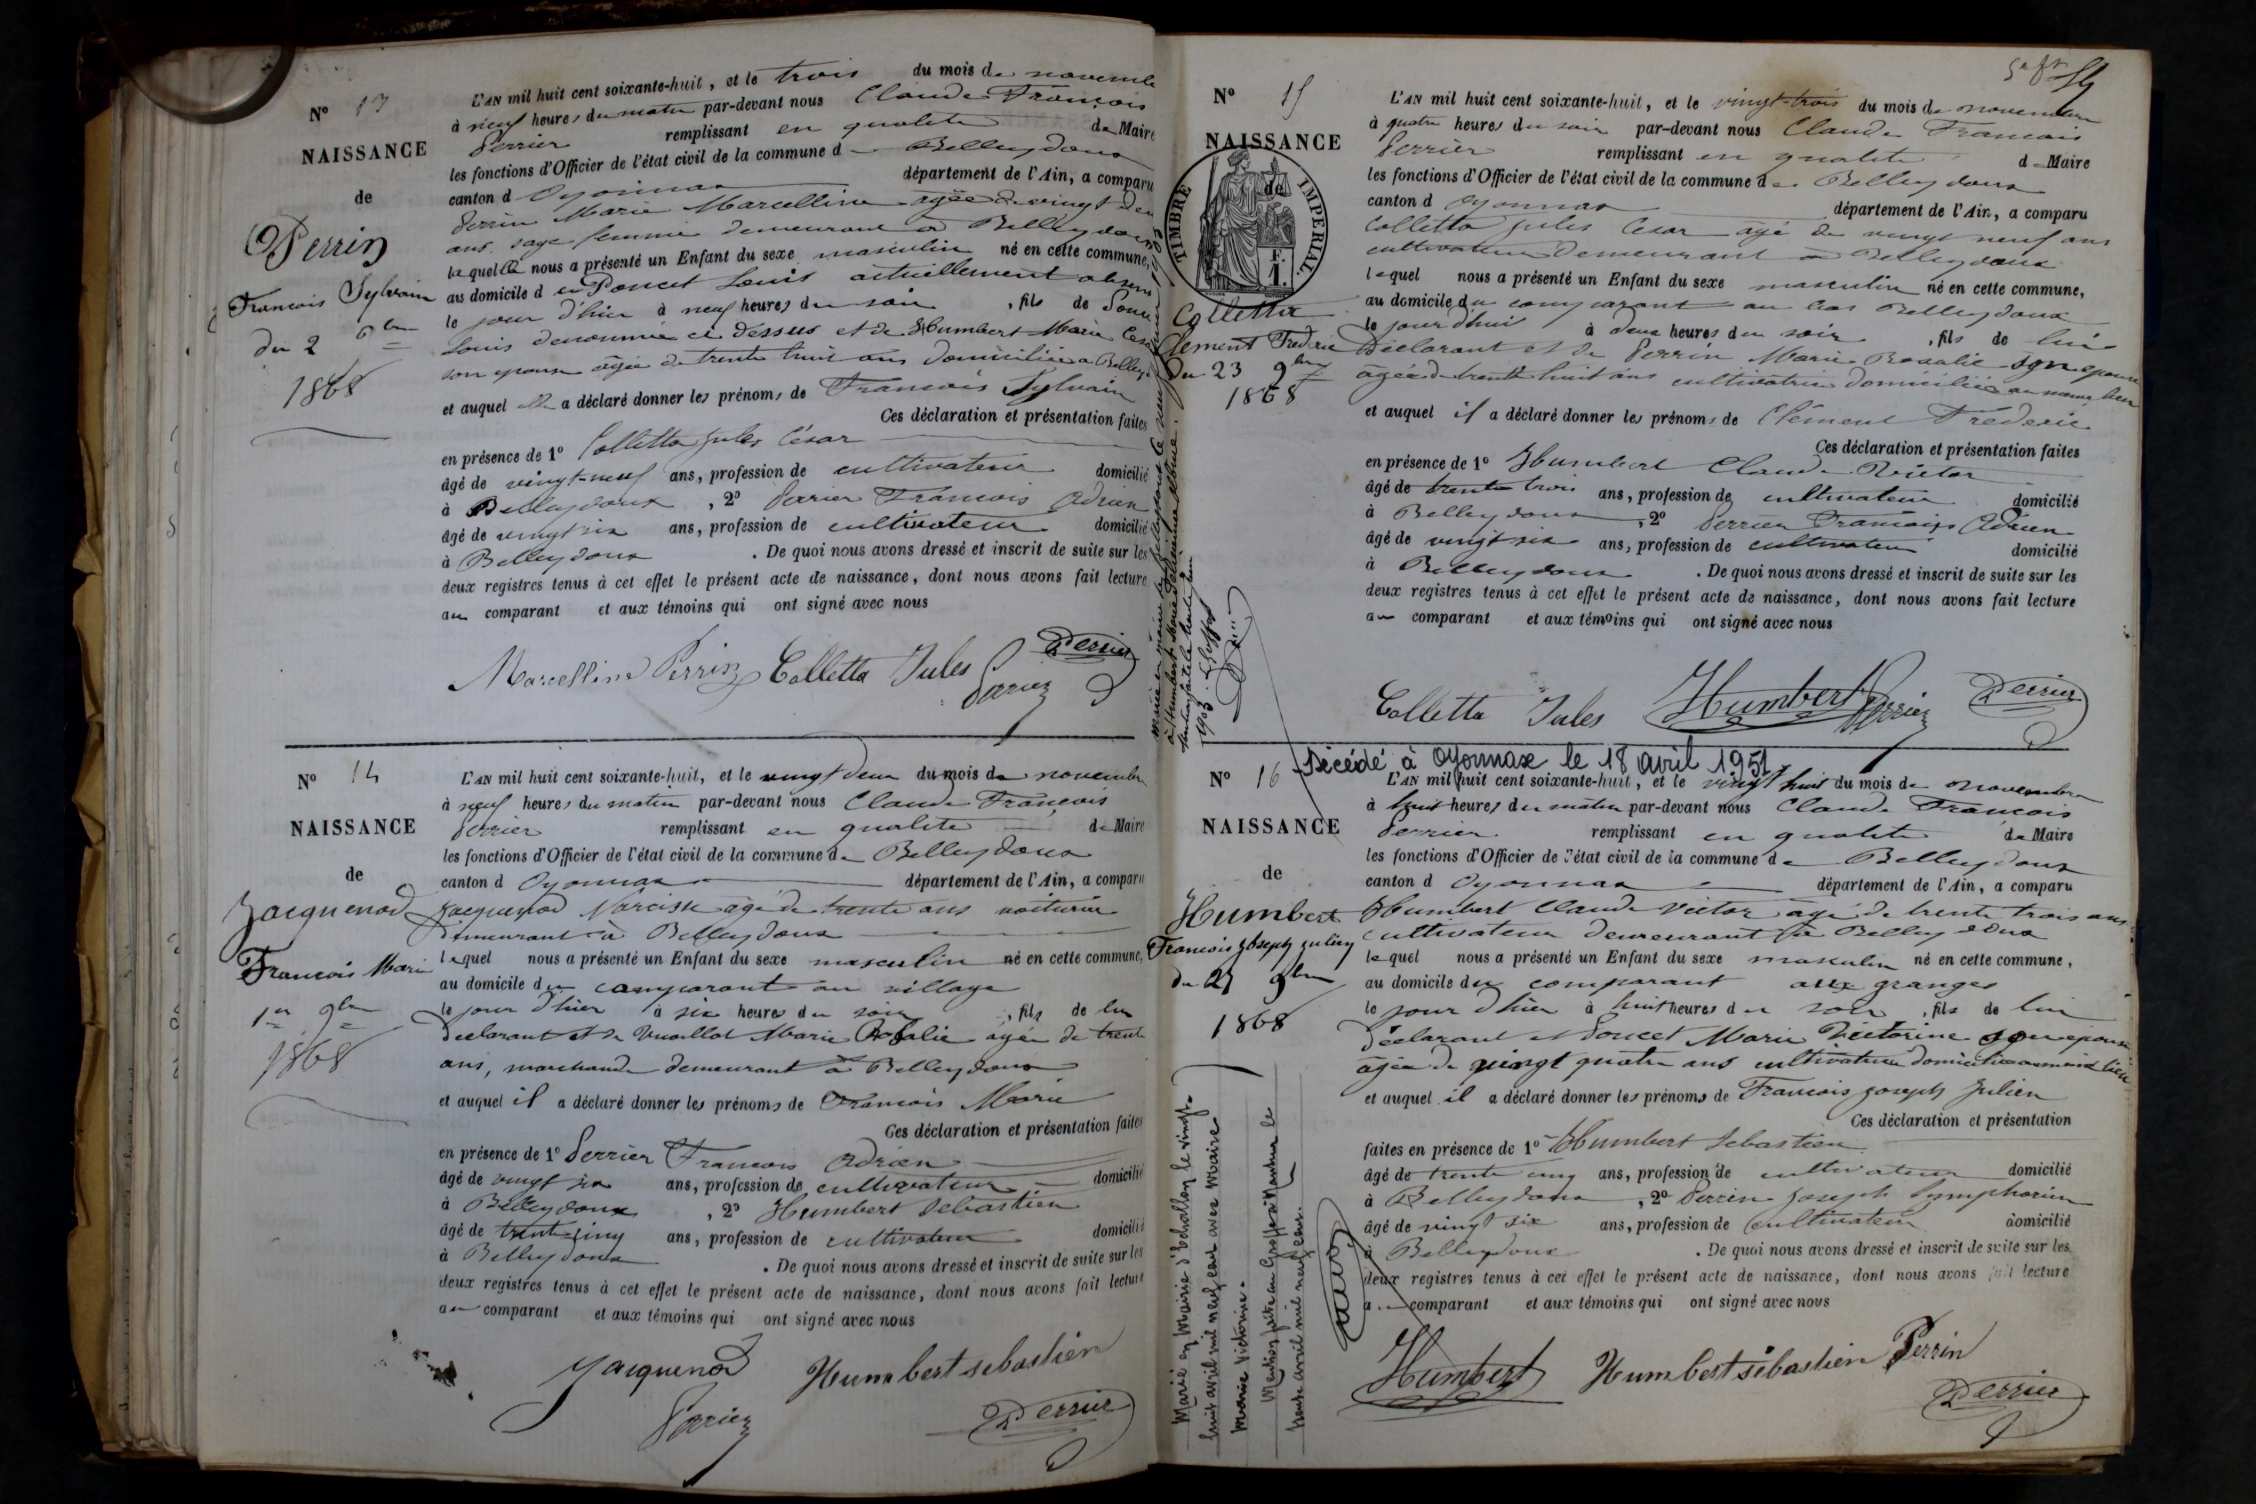 N° 13
NAISSANCE
de
Perrin
François Sylvain
du 2 9bre
1868
L'AN mil huit cent soixante-huit, et le trois du mois de novembre
à neuf heures du matin par-devant nous Claude François
Perrier remplissant en qualité de Maire
les fonctions d'Officier de l'état civil de la commune d Belleydoux
canton d Oyonnax département de l'Ain, a comparu
Perrin Marie Marcelline agée de vingt deux
ans sage femme demeurant à Belleydoux
laquelle nous a présenté un Enfant du sexe masculin né en cette commune,
au domicile d Poncet Louis actuellement absent
le jour d'hier à neuf heures du soir, fils de Poncet
Louis denommé ci dessus et de Humbert Marie
son epouse agée de trente huit ans domiciliée a Belleyd
et auquel elle a déclaré donner les prénoms de François Sylvain
Ces déclaration et présentation faites
en présence de 1° Colletta Jules César
âgé de vingt-neuf ans, profession de cultivateur domicilié
à Belleydoux, 2° Perrier François Adrien
âgé de vingt six ans, profession de cultivateur domicilié
à Belleydoux. De quoi nous avons dressé et inscrit de suite sur les
deux registres tenus à cet effet le présent acte de naissance, dont nous avons fait lecture
au comparant et aux témoins qui ont signé avec nous
Marcelline Perrin Colletta Jules Perrier Perrier
N° 14
NAISSANCE
de
Jacquenod
François Marie
1er 9bre
1868
L'AN mil huit cent soixante-huit, et le vingt deux du mois de novembre
à neuf heures du matin par-devant nous Claude François
Perrier remplissant en qualité de Maire
les fonctions d'Officier de l'état civil de la commune de Belleydoux
canton d Oyonnax département de l'Ain, a comparu
Jacquenod Narcisse agé de trente ans voiturier
demeurant à Belleydoux
lequel nous a présenté un Enfant du sexe masculin né en cette commune,
au domicile du comparant au village
le jour d'hier à six heures du soir, fils de lui
déclarant et de Vuaillat Marie Rosalie agée de trente
ans, marchande demeurant à Belleydoux
et auquel il a déclaré donner les prénoms de François Marie
Ces déclaration et présentation faites
en présence de 1° Perrier François Adrien
âgé de vingt six ans, profession de cultivateur domicilié
à Belleydoux, 2° Humbert Sébastien
âgé de trente cinq ans, profession de cultivateur domicilié
à Belleydoux. De quoi nous avons dressé et inscrit de suite sur les
deux registres tenus à cet effet le présent acte de naissance, dont nous avons fait lecture
au comparant et aux témoins qui ont signé avec nous
Jacquenod Humbert sebastien
Perrier Perrier
N° 15
NAISSANCE
de
TIMBRE IMPÉRIAL.
1 F.
Colletta
Clement Frederic
Du 23 9bre
1868
L'AN mil huit cent soixante-huit, et le vingt-trois du mois de novembre
à quatre heures du soir par-devant nous Claude François
Perrier remplissant en qualité d Maire
les fonctions d'Officier de l'état civil de la commune de Belleydoux
canton d Oyonnax département de l'Ain, a comparu
Colletta Jules Cesar agé de vingt neuf ans
cultivateur demeurant à Belleydoux
lequel nous a présenté un Enfant du sexe masculin né en cette commune,
au domicile du comparant au bas Belleydoux
le jourd'hui à deux heures du soir, fils de lui
déclarant et de Perrin Marie Rosalie son epouse
agée de trente huit ans cultivatrice domiciliée au meme lieu
et auquel il a déclaré donner les prénoms de Clément Fréderic
Ces déclaration et présentation faites
en présence de 1° Humbert Claude Victor
âgé de trente trois ans, profession de cultivateur domicilié
à Belleydoux, 2° Perrier François Adrien
âgé de vingt six ans, profession de cultivateur domicilié
à Belleydoux. De quoi nous avons dressé et inscrit de suite sur les
deux registres tenus à cet effet le présent acte de naissance, dont nous avons fait lecture
au comparant et aux témoins qui ont signé avec nous
Colletta Jules Humbert Perrier Perrier
Décédé à Oyonnax le 18 avril 1951
N° 16
NAISSANCE
de
Humbert
François Joseph Julien
du 27 9bre
1868
L'AN mil huit cent soixante-huit, et le vingt huit du mois de novembre
à huit heures du matin par-devant nous Claude François
Perrier remplissant en qualité de Maire
les fonctions d'Officier de l'état civil de la commune de Belleydoux
canton d Oyonnax département de l'Ain, a comparu
Humbert Claude Victor agé de trente trois ans
cultivateur demeurant à Belleydoux
lequel nous a présenté un Enfant du sexe masculin né en cette commune,
au domicile du comparant aux granges
le jour d'hier à huit heures du soir, fils de lui
déclarant et Poncet Marie Victorine son epouse
agée de vingt quatre ans cultivatrice domiciliée au meme lieu
et auquel il a déclaré donner les prénoms de François Joseph Julien
Ces déclaration et présentation
faites en présence de 1° Humbert Sebastien
âgé de trente cinq ans, profession de cultivateur domicilié
à Belleydoux, 2° Perrin Joseph Symphorien
âgé de vingt six ans, profession de cultivateur domicilié
à Belleydoux. De quoi nous avons dressé et inscrit de suite sur les
deux registres tenus à cet effet le présent acte de naissance, dont nous avons fait lecture
au comparant et aux témoins qui ont signé avec nous
Humbert Humbert sébastien Perrin
Perrier
Marié en Mairie d'Echallon le vingt-
huit avril mil neuf cent avec Maire
Marie Victorine.
Mention faite au Greffe à Nantua le
trente avril mil neuf cent.